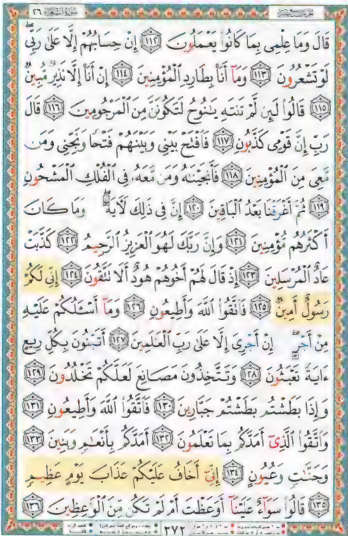 قَالَ وَمَا عِلْمِى بِمَا كَانُوا۟ يَعْمَلُونَ ١١٢ إِنْ حِسَابُهُمْ إِلَّا عَلَىٰ رَبِّى
لَوْ تَشْعُرُونَ ١١٣ وَمَآ أَنَا۠ بِطَارِدِ ٱلْمُؤْمِنِينَ ١١٤ إِنْ أَنَا۠ إِلَّا نَذِيرٌ مُّبِينٌ
١١٥ قَالُوا۟ لَئِن لَّمْ تَنتَهِ يَـٰنُوحُ لَتَكُونَنَّ مِنَ ٱلْمَرْجُومِينَ ١١٦ قَالَ
رَبِّ إِنَّ قَوْمِى كَذَّبُونِ ١١٧ فَٱفْتَحْ بَيْنِى وَبَيْنَهُمْ فَتْحًا وَنَجِّنِى وَمَن
مَّعِىَ مِنَ ٱلْمُؤْمِنِينَ ١١٨ فَأَنجَيْنَـٰهُ وَمَن مَّعَهُۥ فِى ٱلْفُلْكِ ٱلْمَشْحُونِ
١١٩ ثُمَّ أَغْرَقْنَا بَعْدُ ٱلْبَاقِينَ ١٢٠ إِنَّ فِى ذَٰلِكَ لَـَٔايَةً ۖ وَمَا كَانَ
أَكْثَرُهُم مُّؤْمِنِينَ ١٢١ وَإِنَّ رَبَّكَ لَهُوَ ٱلْعَزِيزُ ٱلرَّحِيمُ ١٢٢ كَذَّبَتْ
عَادٌ ٱلْمُرْسَلِينَ ١٢٣ إِذْ قَالَ لَهُمْ أَخُوهُمْ هُودٌ أَلَا تَتَّقُونَ ١٢٤ إِنِّى لَكُمْ
رَسُولٌ أَمِينٌ ١٢٥ فَٱتَّقُوا۟ ٱللَّهَ وَأَطِيعُونِ ١٢٦ وَمَآ أَسْـَٔلُكُمْ عَلَيْهِ
مِنْ أَجْرٍ ۖ إِنْ أَجْرِىَ إِلَّا عَلَىٰ رَبِّ ٱلْعَـٰلَمِينَ ١٢٧ أَتَبْنُونَ بِكُلِّ رِيعٍ
ءَايَةً تَعْبَثُونَ ١٢٨ وَتَتَّخِذُونَ مَصَانِعَ لَعَلَّكُمْ تَخْلُدُونَ ١٢٩
وَإِذَا بَطَشْتُم بَطَشْتُمْ جَبَّارِينَ ١٣٠ فَٱتَّقُوا۟ ٱللَّهَ وَأَطِيعُونِ ١٣١
وَٱتَّقُوا۟ ٱلَّذِىٓ أَمَدَّكُم بِمَا تَعْلَمُونَ ١٣٢ أَمَدَّكُم بِأَنْعَـٰمٍ وَبَنِينَ ١٣٣
وَجَنَّـٰتٍ وَعُيُونٍ ١٣٤ إِنِّىٓ أَخَافُ عَلَيْكُمْ عَذَابَ يَوْمٍ عَظِيمٍ
١٣٥ قَالُوا۟ سَوَآءٌ عَلَيْنَآ أَوَعَظْتَ أَمْ لَمْ تَكُن مِّنَ ٱلْوَٰعِظِينَ ١٣٦
٣٧٢